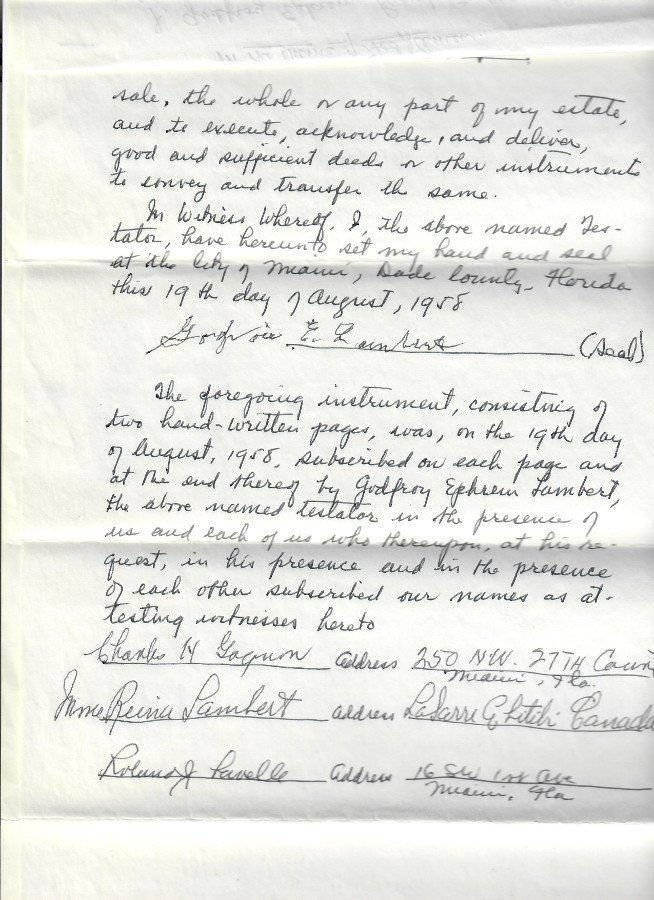 sale, the whole or any part of my estate,
and to execute, acknowledge, and deliver,
good and sufficient deeds or other instruments
to convey and transfer the same.
In Witness Whereof, I, the above named Tes-
tator, have hereunto set my hand and seal
at the City of Miami, Dade County, Florida
this 19th day of August, 1958
E. Lambert (Seal)
The foregoing instrument, consisting of
two hand-written pages, was, on the 19th day
of August, 1958, subscribed on each page and
at the end thereof by Godfroy Ephrem Lambert,
the above named testator in the presence of
us and each of us who thereupon, at his re-
quest, in his presence and in the presence
of each other subscribed our names as at-
testing witnesses hereto
Charles H Gagnon address 250 NW. 27TH Court
Miami, Fla.
Mme Reina Lambert address LaSarre Abitibi Canada
Roland J Lavelle address 16 SW 1st Ave
Miami, Fla